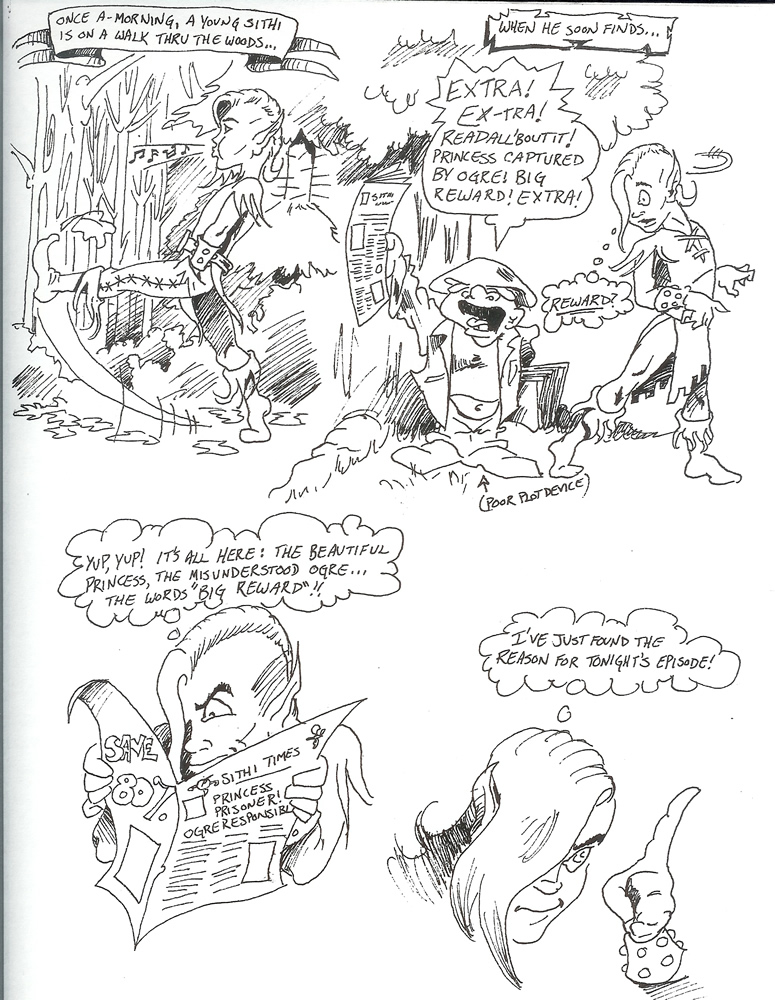 ONCE A-MORNING, A YOUNG SITHI
IS ON A WALK THRU THE WOODS...
WHEN HE SOON FINDS...
EXTRA!
EX-TRA!
READALL'BOUTIT!
PRINCESS CAPTURED
BY OGRE! BIG
REWARD! EXTRA!
SITHI
REWARD?
(POOR PLOT DEVICE)
YUP, YUP! IT'S ALL HERE: THE BEAUTIFUL
PRINCESS, THE MISUNDERSTOOD OGRE...
THE WORDS "BIG REWARD"!!
I'VE JUST FOUND THE
REASON FOR TONIGHT'S EPISODE!
SAVE
SITHI TIMES
PRINCESS
PRISONER!
OGRE RESPONSIBL